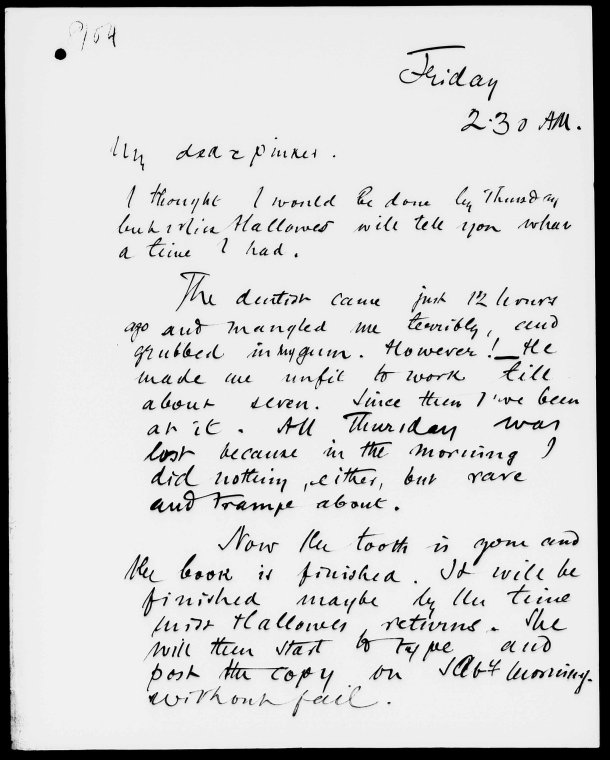 1904
Friday
2.30 AM.
My dear Pinker.
I thought I would be done by Thursday
but Miss Hallowes will tell you what
a time I had.
The dentist came just 12 hours
ago and mangled me terribly, and
grubbed in my gum. However! — He
made me unfit to work till
about seven. Since then I've been
at it. All Thursday was
lost because in the morning I
did nothing, either, but rave
and tramp about.
Now the tooth is gone and
the book is finished. It will be
finished maybe by the time
miss Hallowes returns. She
will then start to type and
post the copy on Sat morning
without fail.